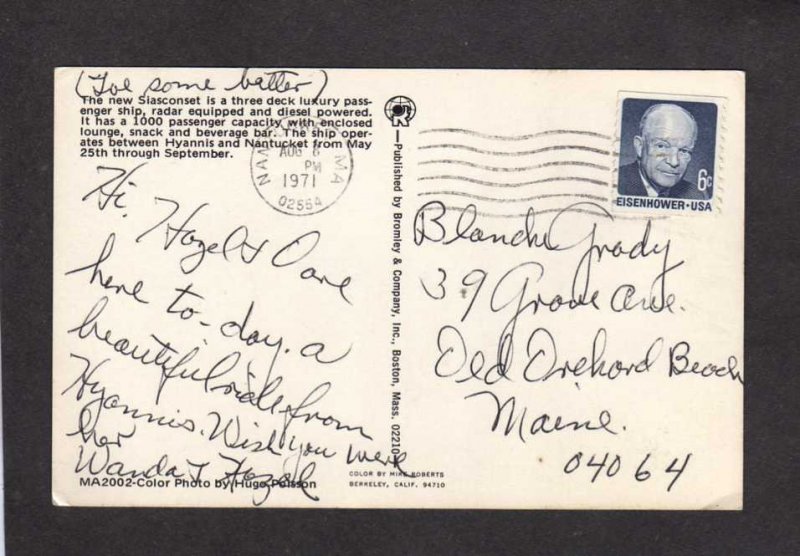 (Toe some batter)
The new Siasconset is a three deck luxury pass-
enger ship, radar equipped and diesel powered.
It has a 1000 passenger capacity with enclosed
lounge, snack and beverage bar. The ship oper-
ates between Hyannis and Nantucket from May
25th through September.
MA
AUG
PM
1971
02554
Hi,
Hazel &
here to-day. a
beautiful ride from
Hyannis. Wish you were
her
Wanda & Hazel
MA2002-Color Photo by Hugo Poisson
Published by Bromley & Company, Inc., Boston, Mass. 02210
COLOR BY MIKE ROBERTS
BERKELEY, CALIF. 94710
6c
EISENHOWER·USA
Blanche Grady
39 Grove Ave.
Old Orchard Beach
Maine.
04064